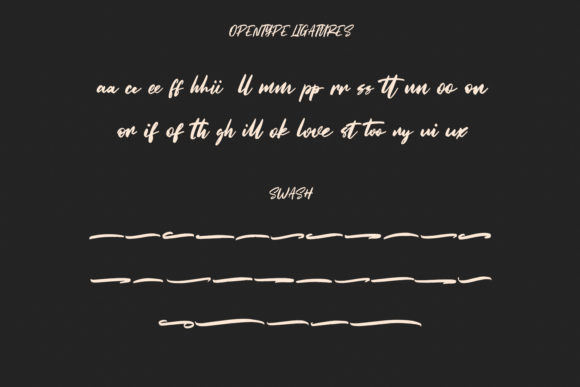 OPENTYPE LIGATURES
aa cc ee ff hh ii ll mm pp rr ss tt un oo on
or if of th gh ill ok love st too ny ui ux
SWASH